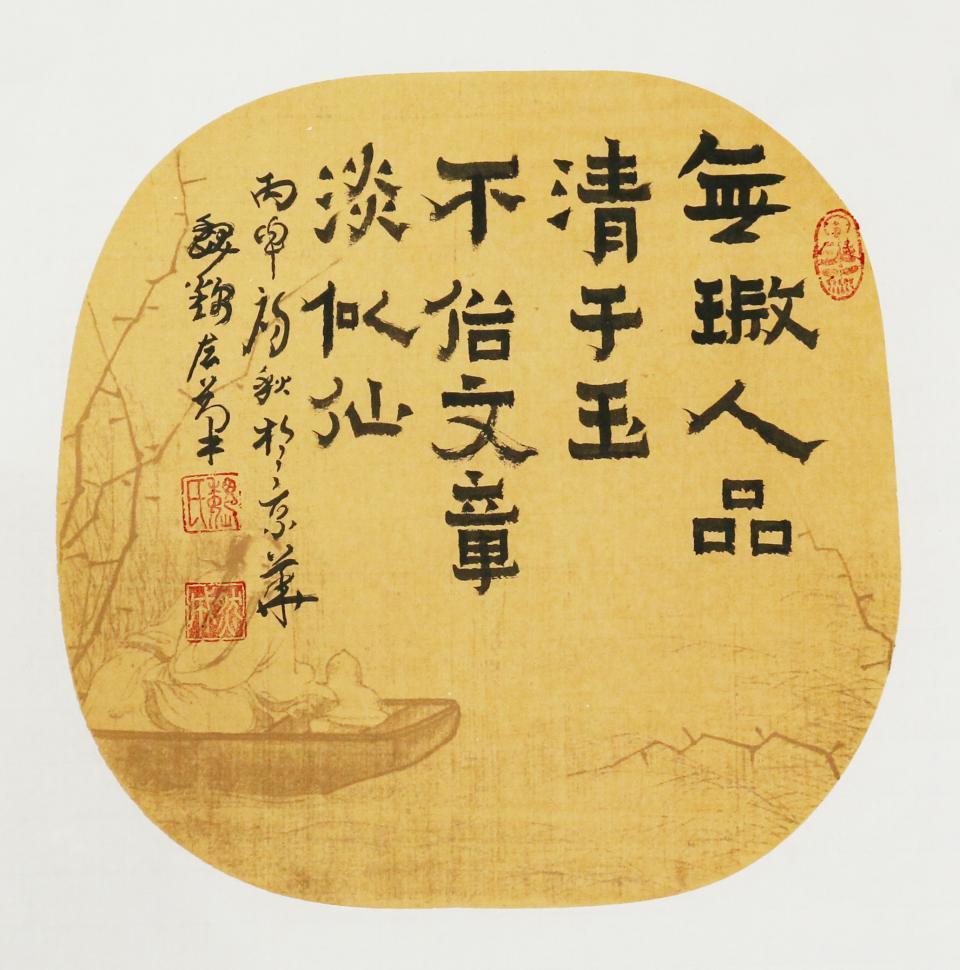 無瑕人品
清于玉
不俗文章
淡似仙
丙申初秋於京華
魏